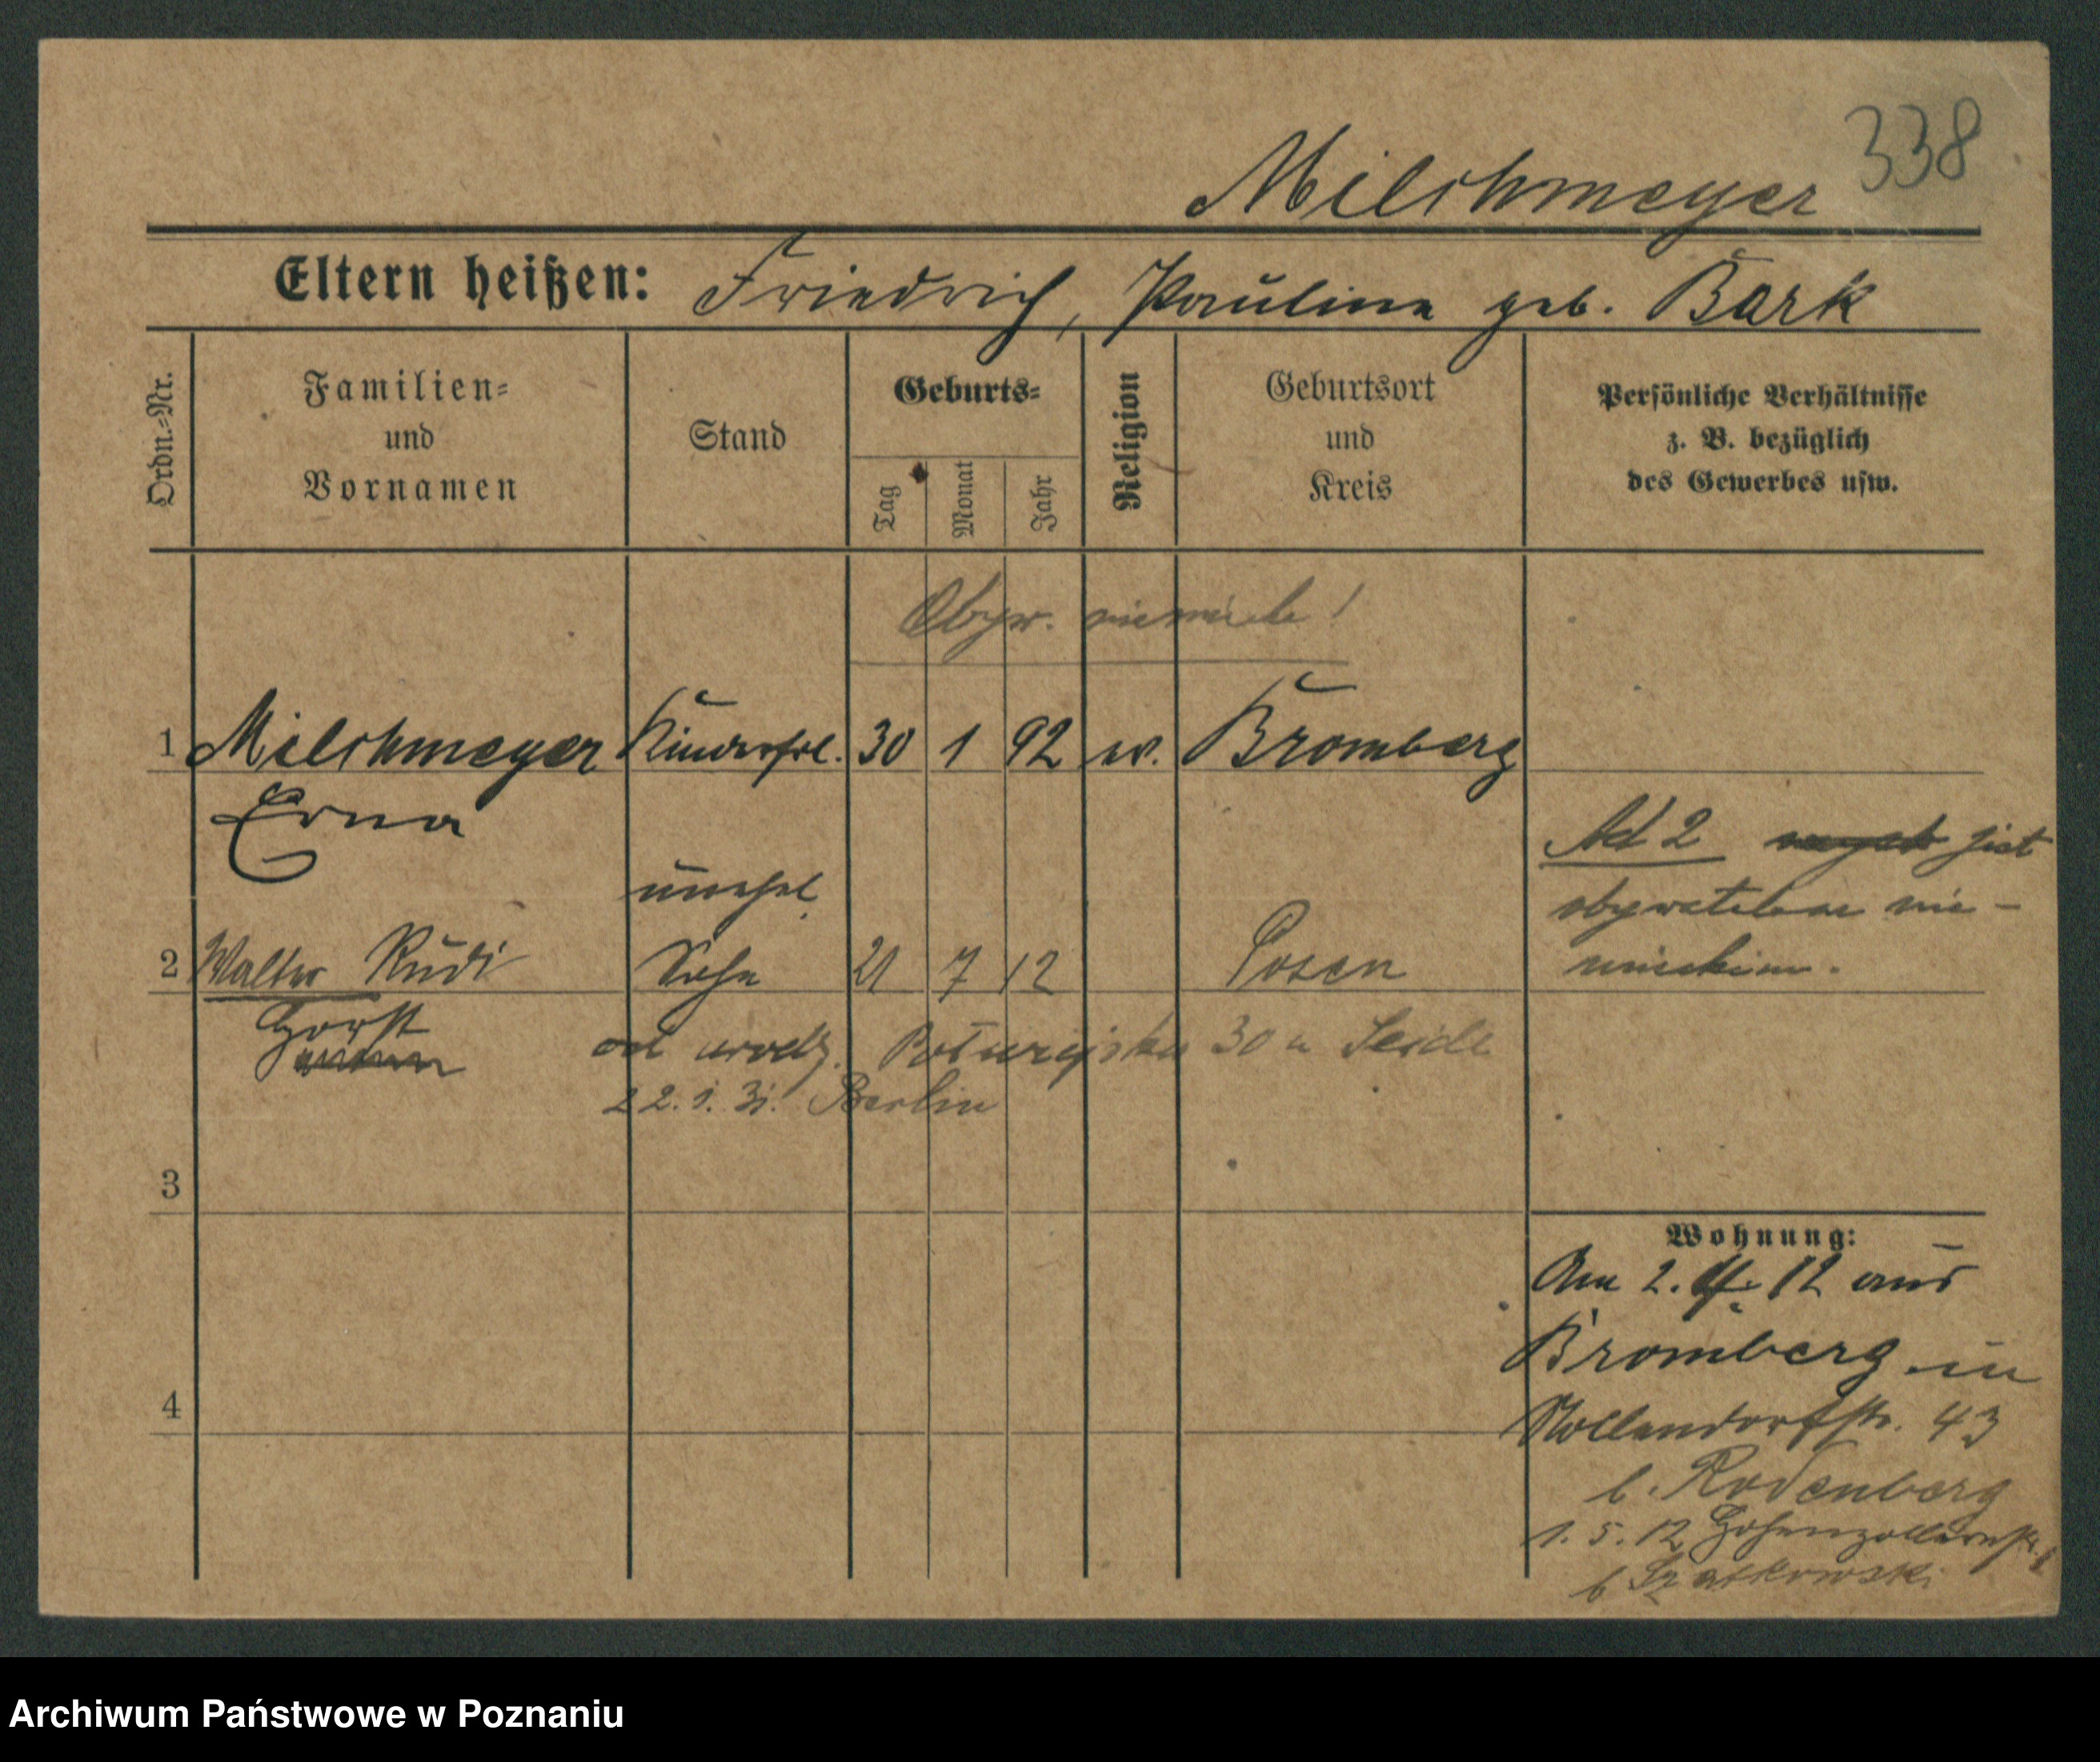 338
Milchmeyer
Eltern heißen: Friedrich, Pauline geb. Bark
Ordn.=Nr.
Familien=
und
Vornamen
Stand
Geburts=
Tag
Monat
Jahr
Religion
Geburtsort
und
Kreis
Persönliche Verhältnisse
z. B. bezüglich
des Gewerbes usw.
Obyw. niemiecka!
1 Milchmeyer Kinderfrl. 30 1 92 ev. Bromberg
Erna
Ad 2 jest
obywatelem nie-
mieckim.
unehel.
2 Walter Rudi Sohn 21 7 12 Posen
Horst
od urodz. 30 u Seide
22. 1. 31. Berlin
3
4
Wohnung:
Am 2. 4. 12 aus
Bromberg in
Nollendorfstr. 43
b. Rodenberg
1. 5. 12 Hohenzollernstr.
b
Archiwum Państwowe w Poznaniu